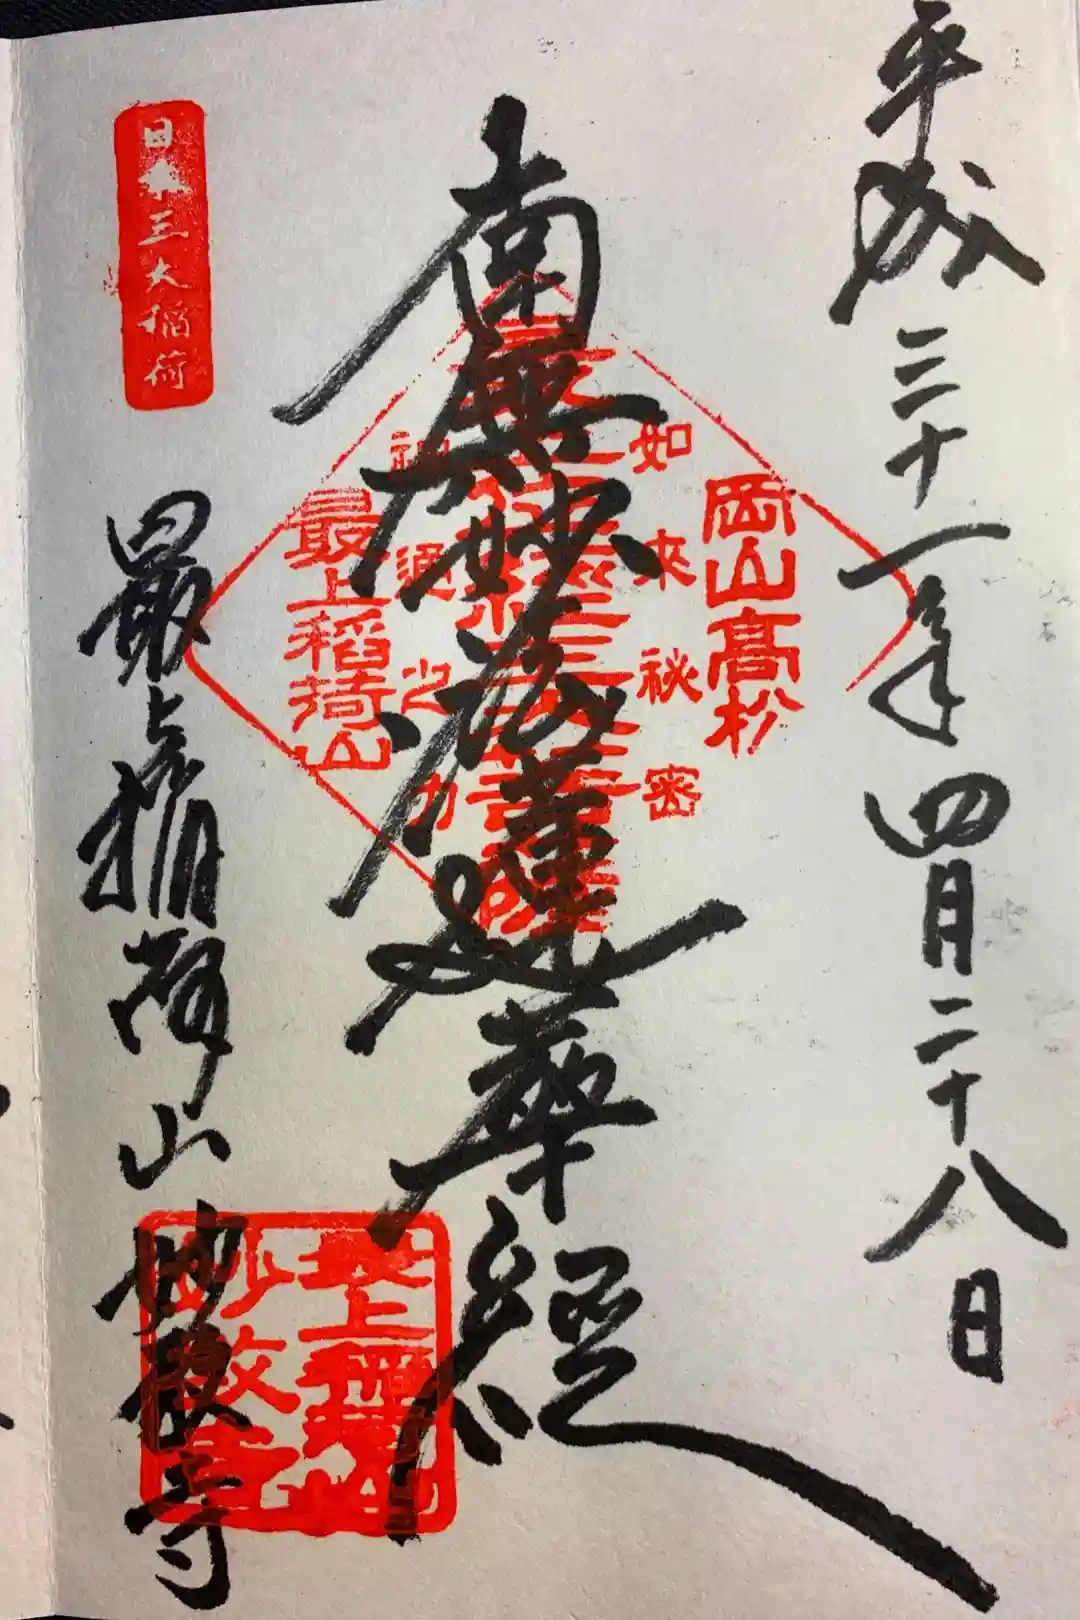 平成三十一年四月二十八日
岡山高松
如来秘密
南無妙法蓮華經
神通之力
最上稲荷山
日本三大稲荷
最上稲荷山妙教寺
最上稲荷山
妙教寺